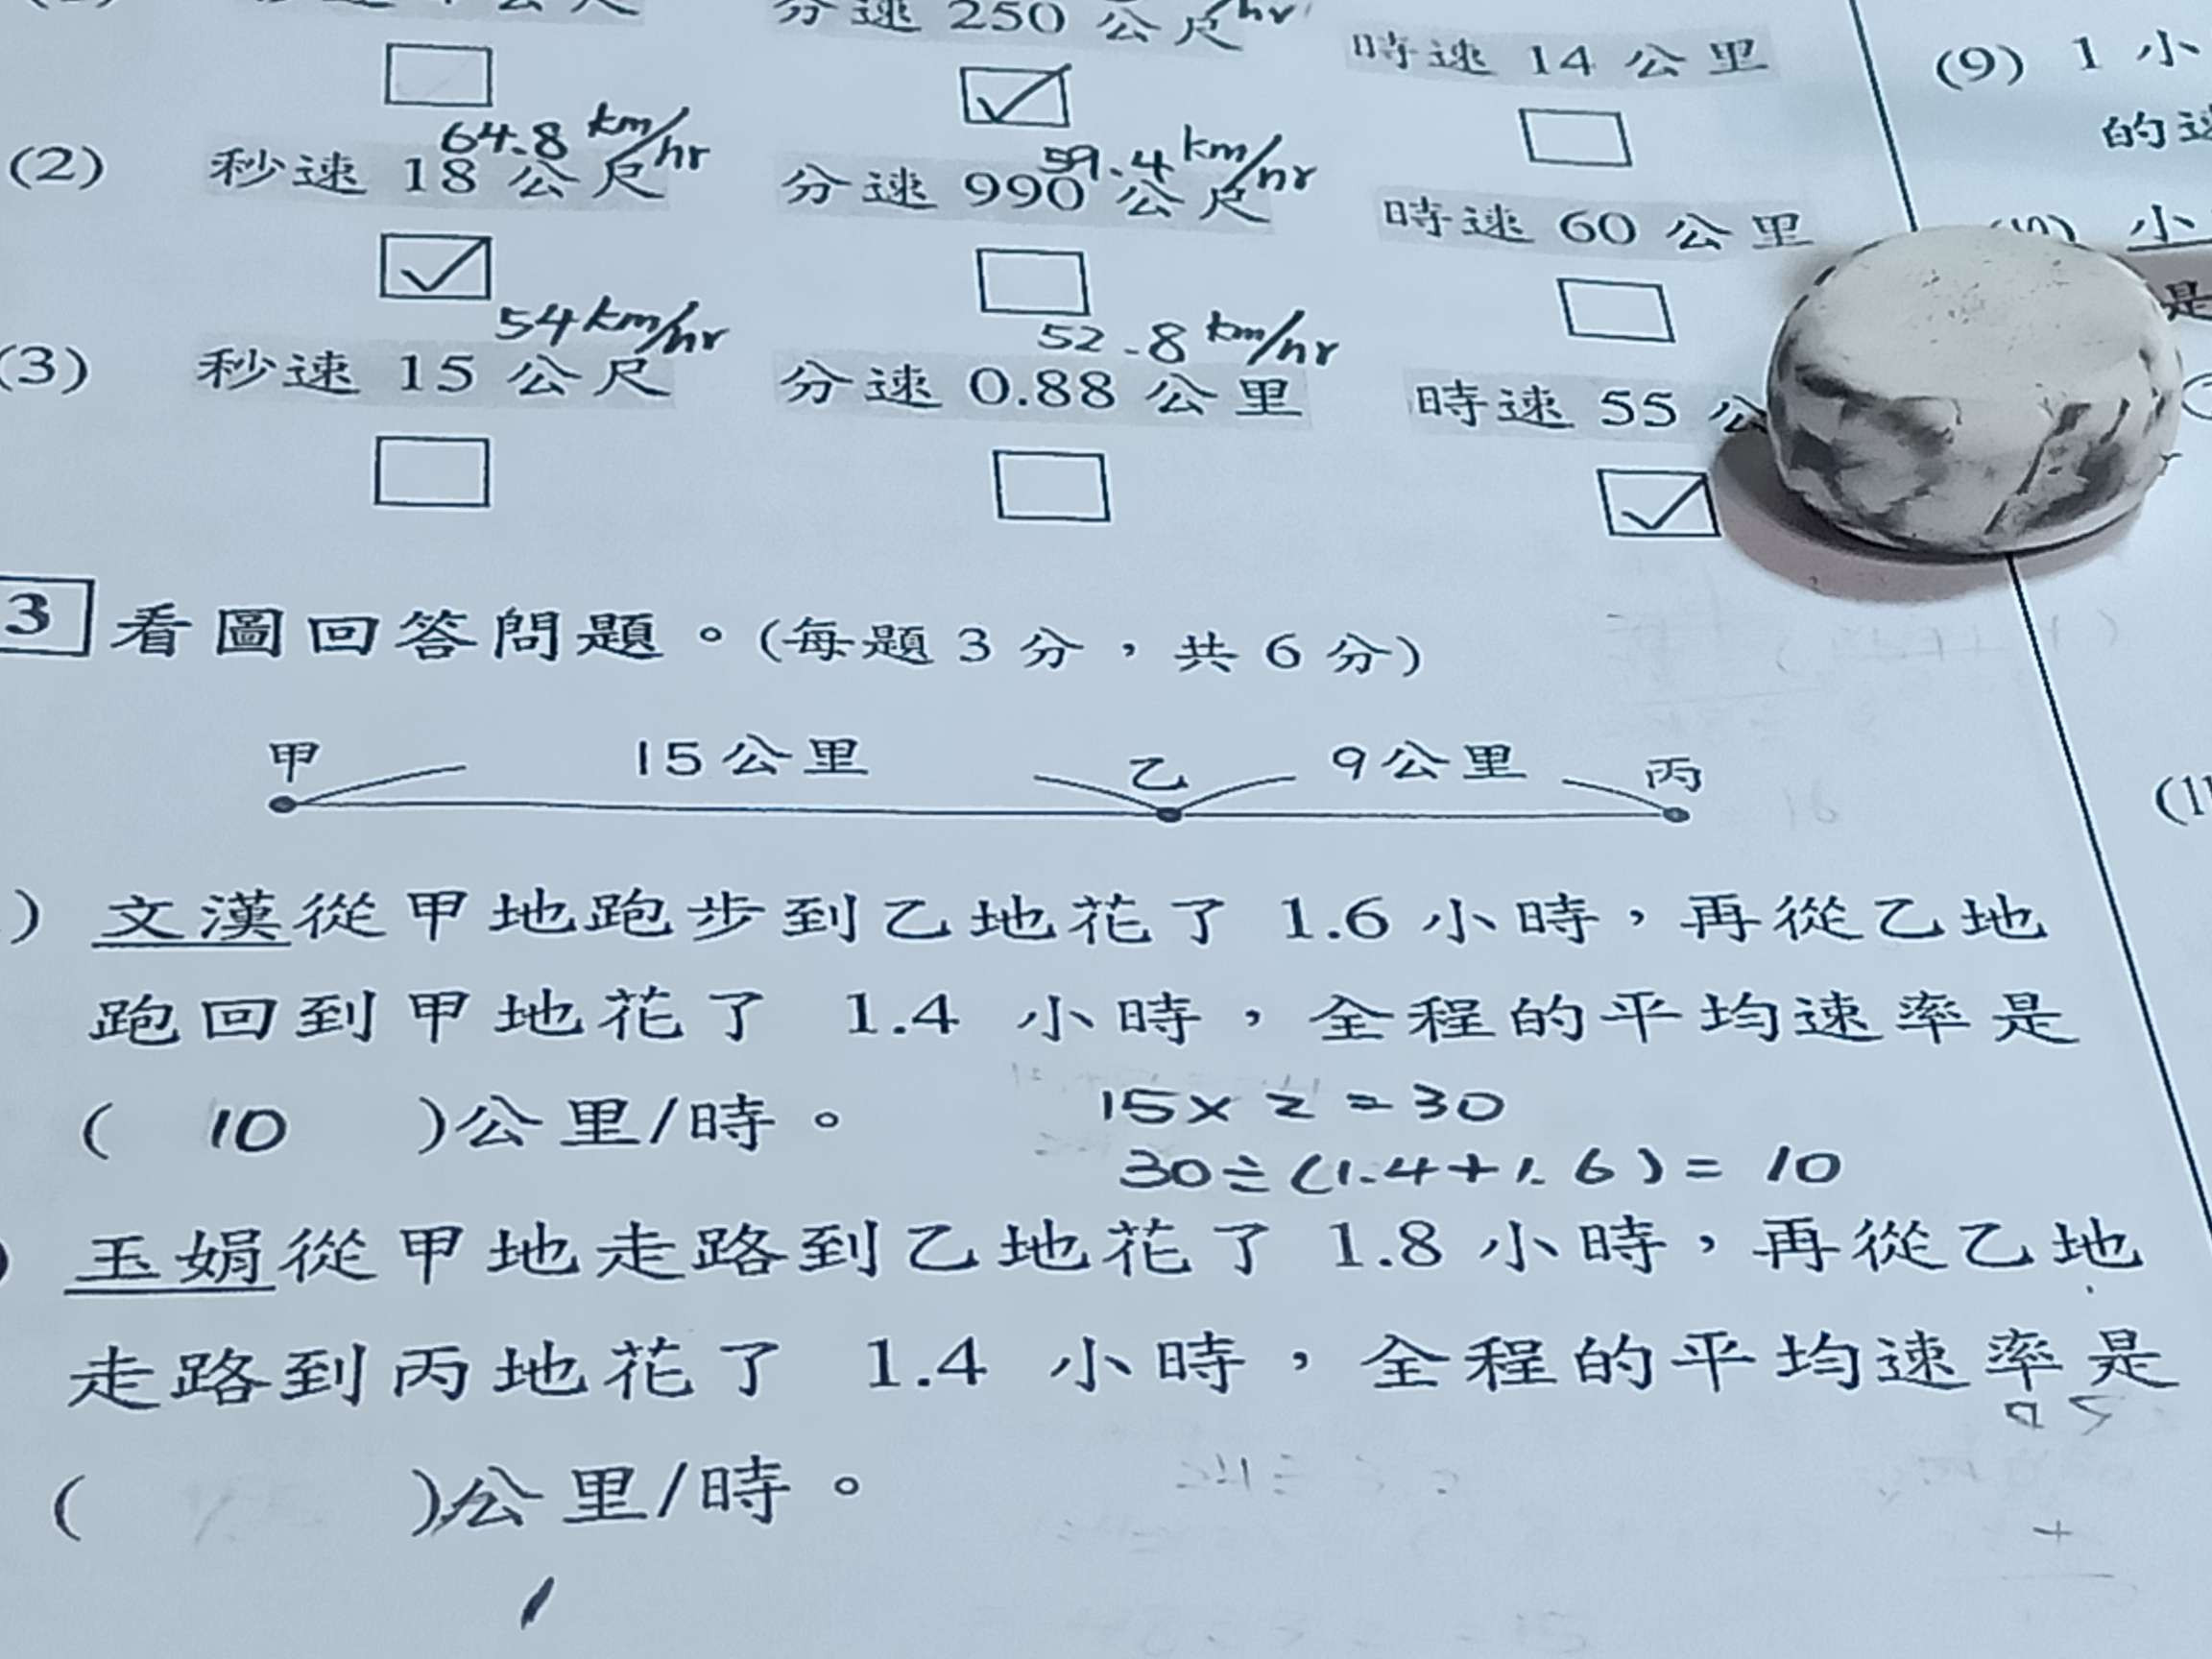 分速 250 公尺
時速 14 公里
(9) 1 小
的速
64.8 km/hr
59.4 km/hr
(2) 秒速 18 公尺 分速 990 公尺 時速 60 公里
小
是
54 km/hr
52.8 km/hr
(3) 秒速 15 公尺 分速 0.88 公里 時速 55 公
3 看圖回答問題。(每題 3 分，共 6 分)
甲 15公里 乙 9公里 丙
(11
) 文漢從甲地跑步到乙地花了 1.6 小時，再從乙地
跑回到甲地花了 1.4 小時，全程的平均速率是
( 10 )公里/時。
15 x 2 = 30
30÷(1.4+1.6)= 10
玉娟從甲地走路到乙地花了 1.8 小時，再從乙地
走路到丙地花了 1.4 小時，全程的平均速率是
( )公里/時。